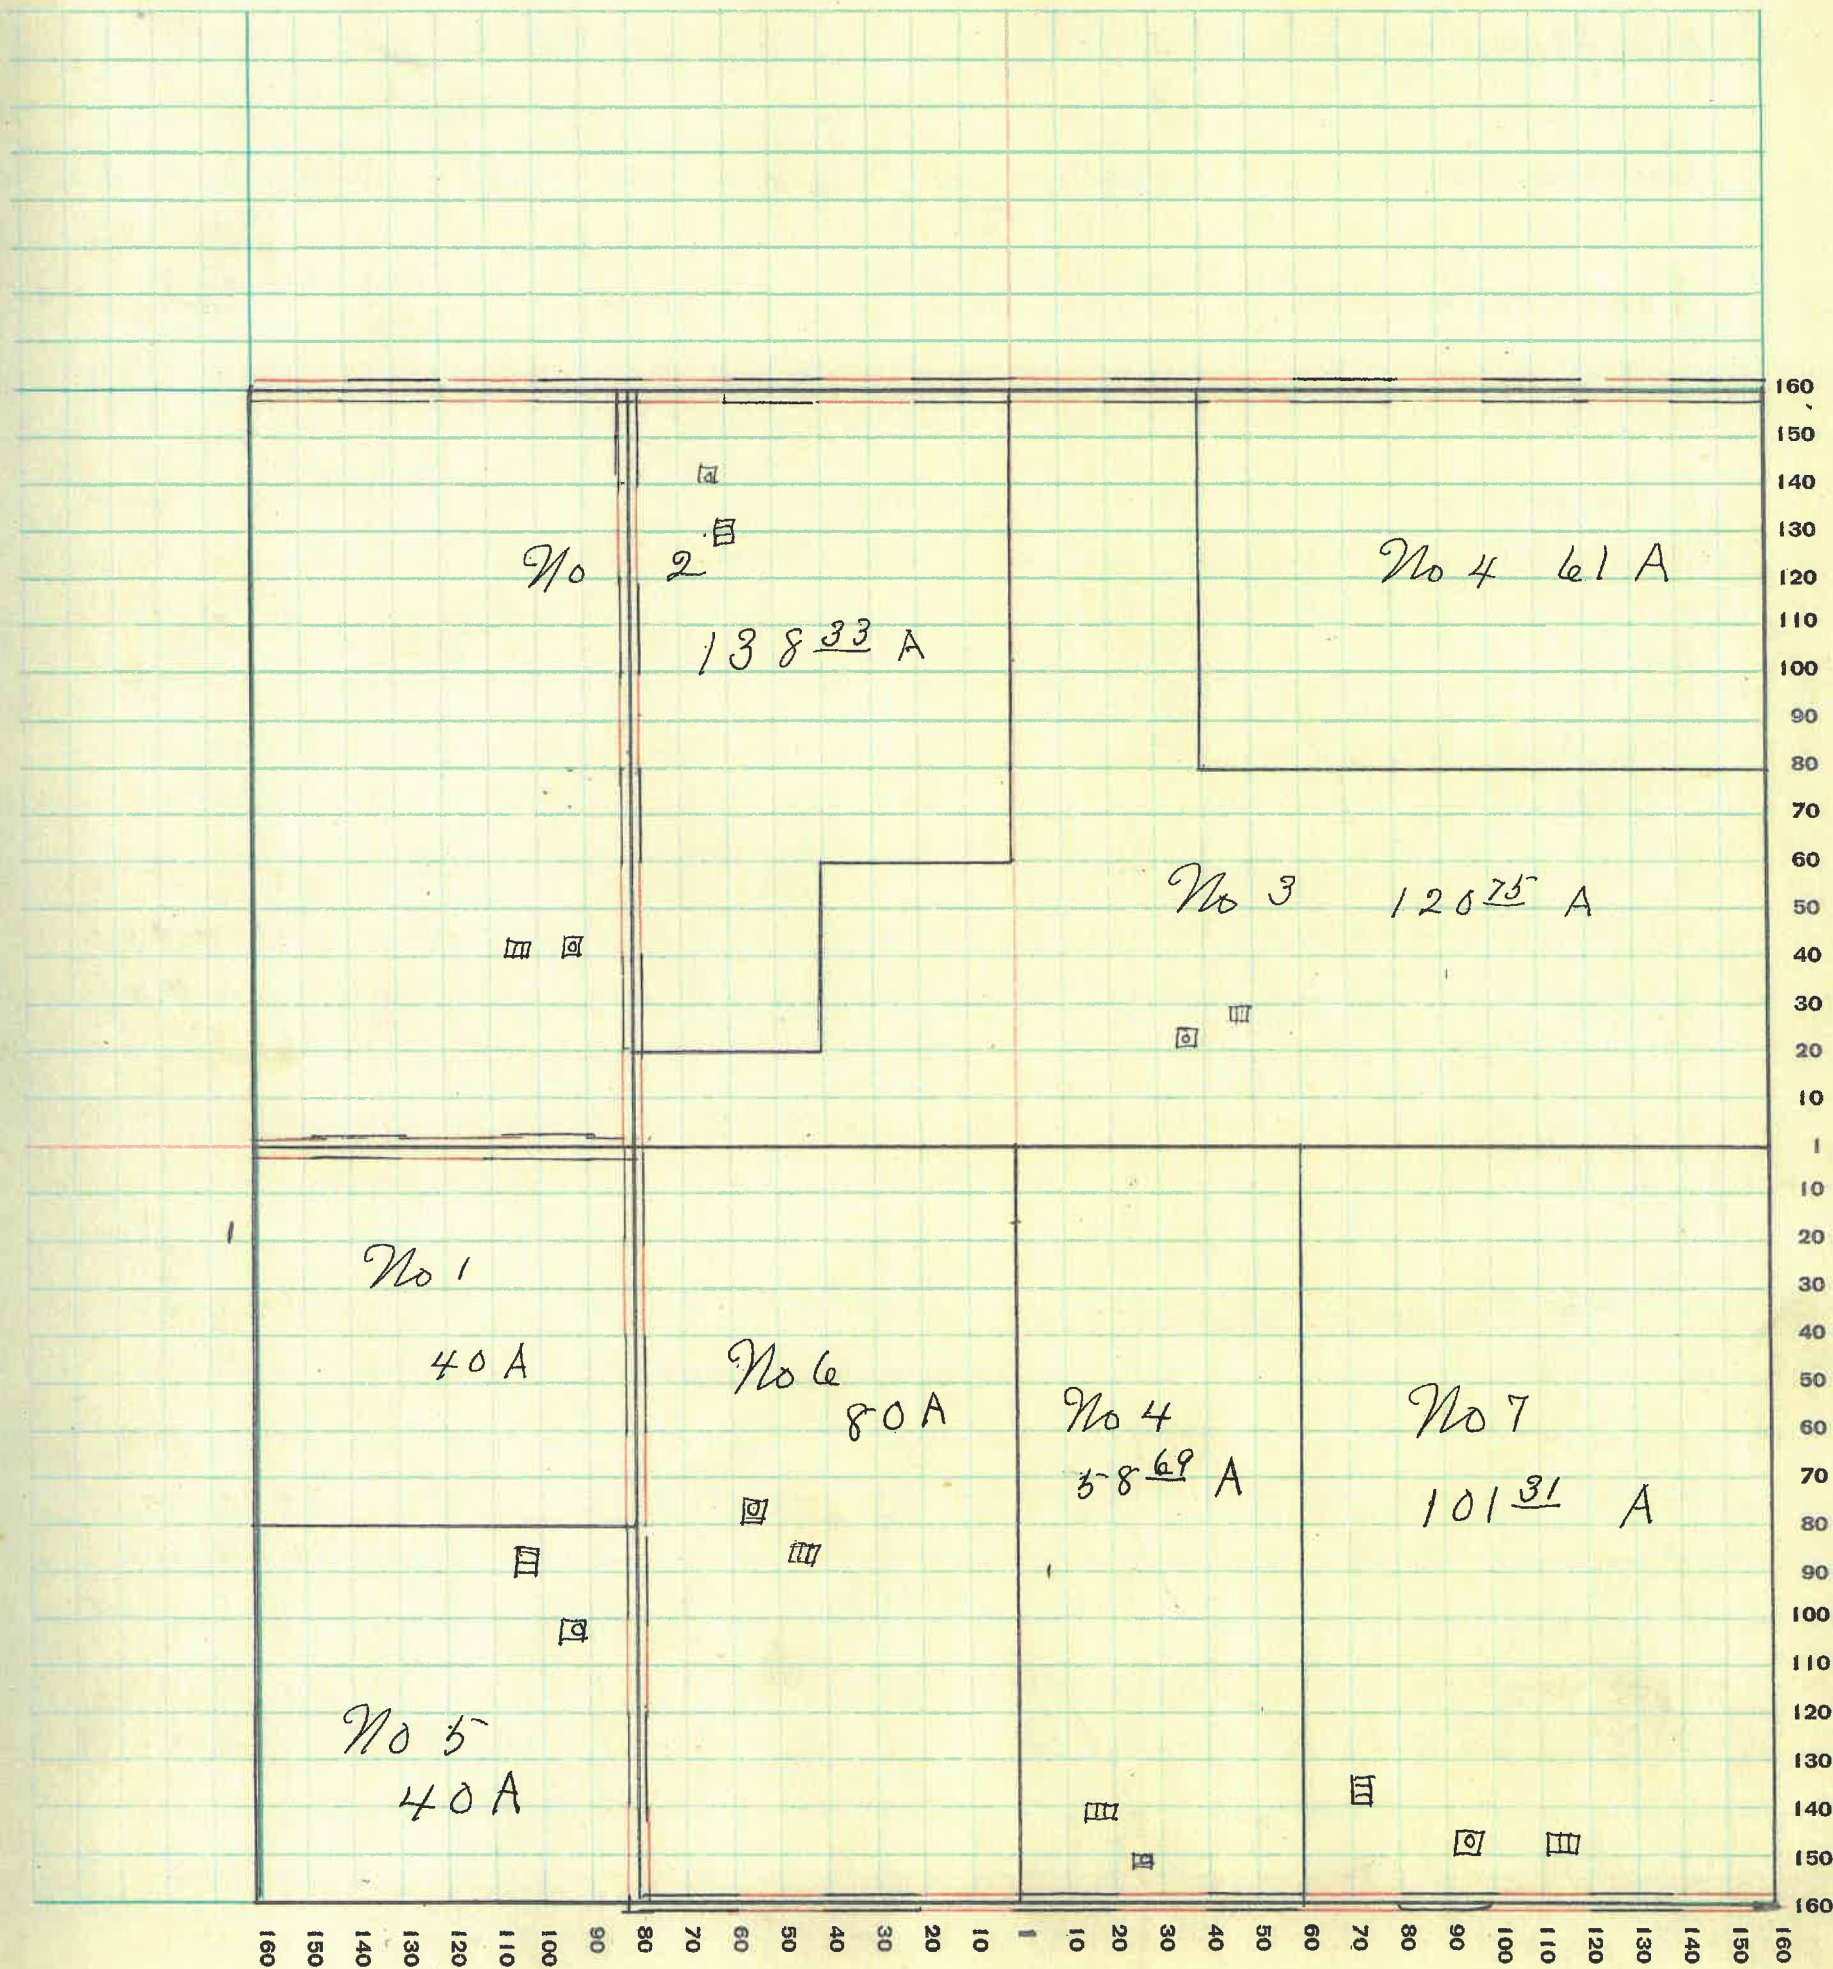 No 2
138 33 A
No 4 61 A
No 3 120 75 A
No 1
40 A
No 6
80 A
No 4
58 69 A
No 7
101 31 A
No 5
40 A
160
150
140
130
120
110
100
90
80
70
60
50
40
30
20
10
1
10
20
30
40
50
60
70
80
90
100
110
120
130
140
150
160
160 150 140 130 120 110 100 90 80 70 60 50 40 30 20 10 1 10 20 30 40 50 60 70 80 90 100 110 120 130 140 150 160